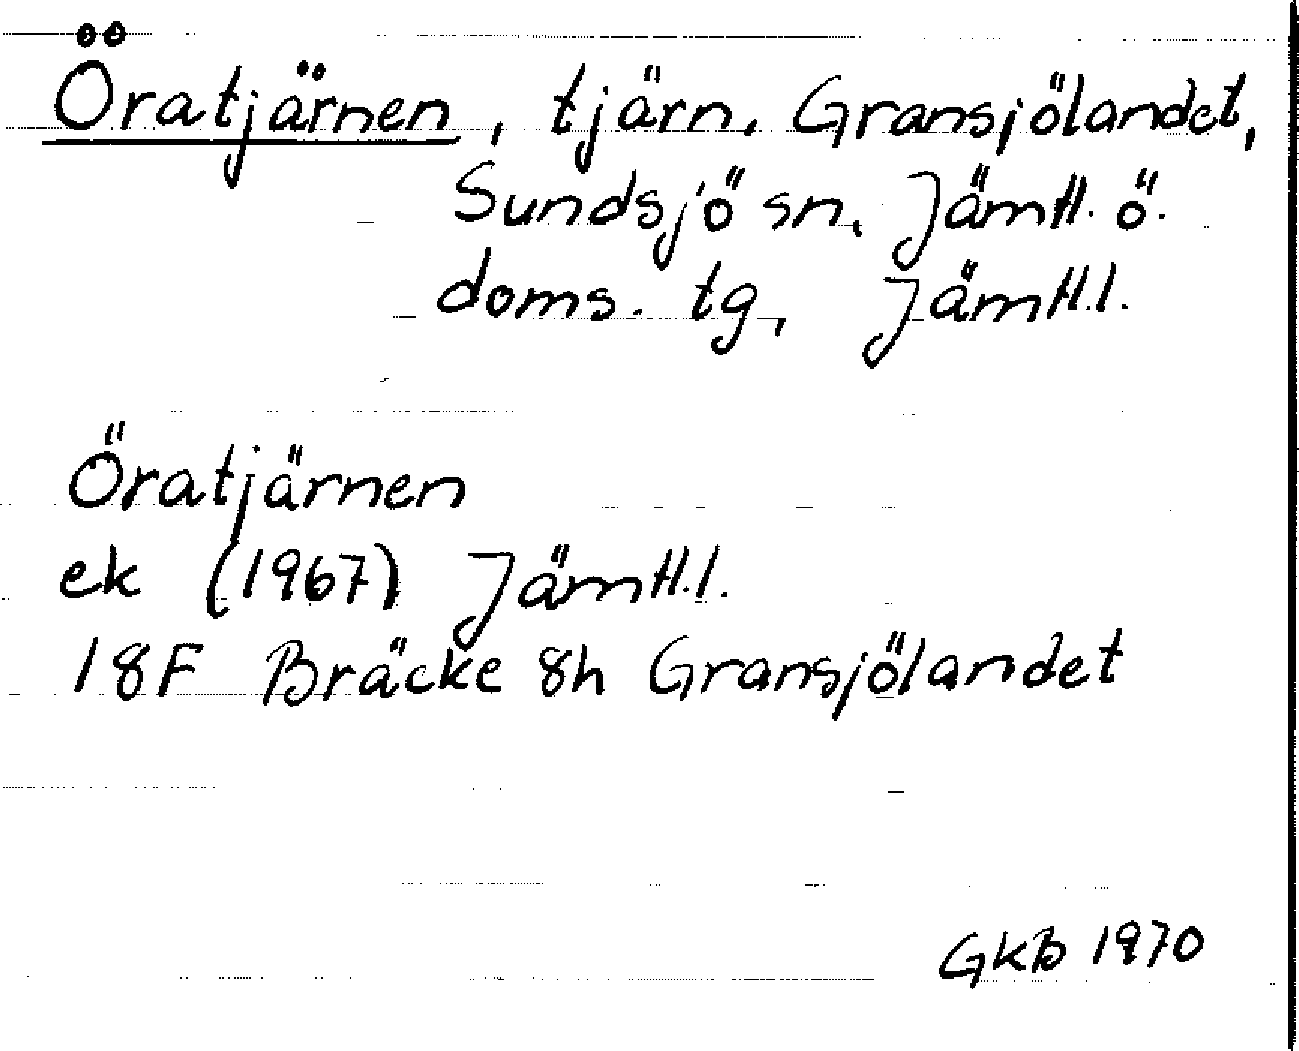 Öratjärnen, tjärn. Gransjölandet,
Sundsjö sn, Jämtl. ö.
doms. tg, Jämtl.l.
Öratjärnen
ek (1967) Jämtl.l.
18F Bräcke 8h Gransjölandet
GKB 1970